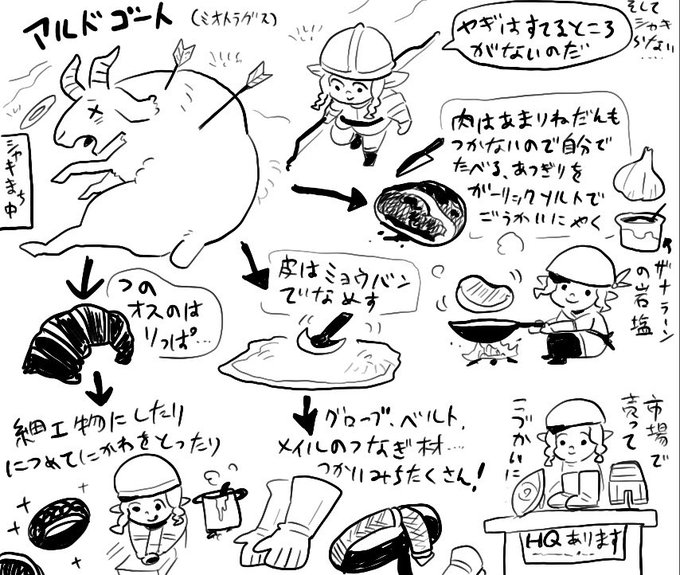 アルドゴート
(ミオトラグス)
やぎはすてるところ
がないのだ
そして
シャキ
らない……
シャキまち中
肉はあまりねだんも
つかないので自分で
たべる、あつぎりを
ガーリックソルトで
ごうかいにやく
ザナラーン
の岩塩
つの
オスのは
りっぱ…
皮はミョウバン
でなめす
細工物にしたり
につめてにかわをとったり
グローブ、ベルト、
メイルのつなぎ材…
つかいみちたくさん!
市場で
売って
こづかいに
HQあります